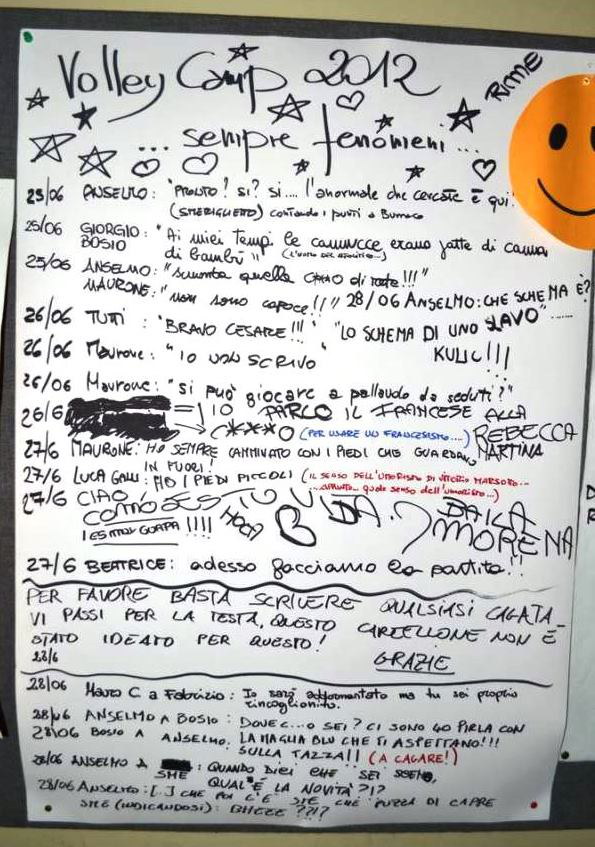 Volley Camp 2012
RIME
... sempre fenomeni ...
25/06 ANSELMO: "PRONTO? SI? SI.... l'anormale che cercate è qui!
(SMERIGLIETO) contando i punti a Burraco
25/06 GIORGIO BOSIO: "Ai miei tempi le camicce erano fatte di canna
di bambù"
25/06 ANSELMO: "smonta quella CAAO di rete!!!"
MAURONE: "non sono capace!!" 28/06 ANSELMO: CHE SCHEMA È?
26/06 TUTTI: "BRAVO CESARE!!!" "LO SCHEMA DI UNO SLAVO" ......
26/06 Maurone: "IO NON SCRIVO KULIC!!!
26/06 Maurone: "si può giocare a pallavolo da seduti?"
26/6 = IO PARLO IL FRANCESE ALLA
C***O (PER USARE UN FRANCESISMO....) REBECCA
27/6 MAURONE: HO SEMPRE CAMMINATO CON I PIEDI CHE GUARDANO MARTINA
IN FUORI!
27/6 LUCA GALLI: HO I PIEDI PICCOLI (IL SENSO DELL'UMORISMO DI VITTORIO MARSORO...
...appunto... quale senso dell'umorismo...)
27/6 CIAO COMO ESTÒ VIDA..? DAILA
1 ES MOI GUAPA !!!! HOCA B MORENA
27/6 BEATRICE: adesso facciamo la partita!!
PER FAVORE BASTA SCRIVERE QUALSIASI CAGATA
VI PASSI PER LA TESTA, QUESTO CARTELLONE NON È
STATO IDEATO PER QUESTO!
28/6 GRAZIE
28/06 Mauro C. a Fabrizio: Io sarò addormentato ma tu sei proprio
rincoglionito.
28/06 ANSELMO A BOSIO: DOVE C...O SEI? CI SONO 40 PIRLA CON
LA MAGLIA BLU CHE TI ASPETTANO!!!
28/06 BOSIO A ANSELMO: SULLA TAZZA!! (A CAGARE!)
28/06 ANSELMO A SME: QUANDO DICI CHE SEI SCEMO,
QUAL'È LA NOVITÀ?!?
28/06 ANSELMO: [..] CHE POI C'È SME CHE PUZZA DI CAPRE
SME (INDICANDOSI): BHEEE ??!?